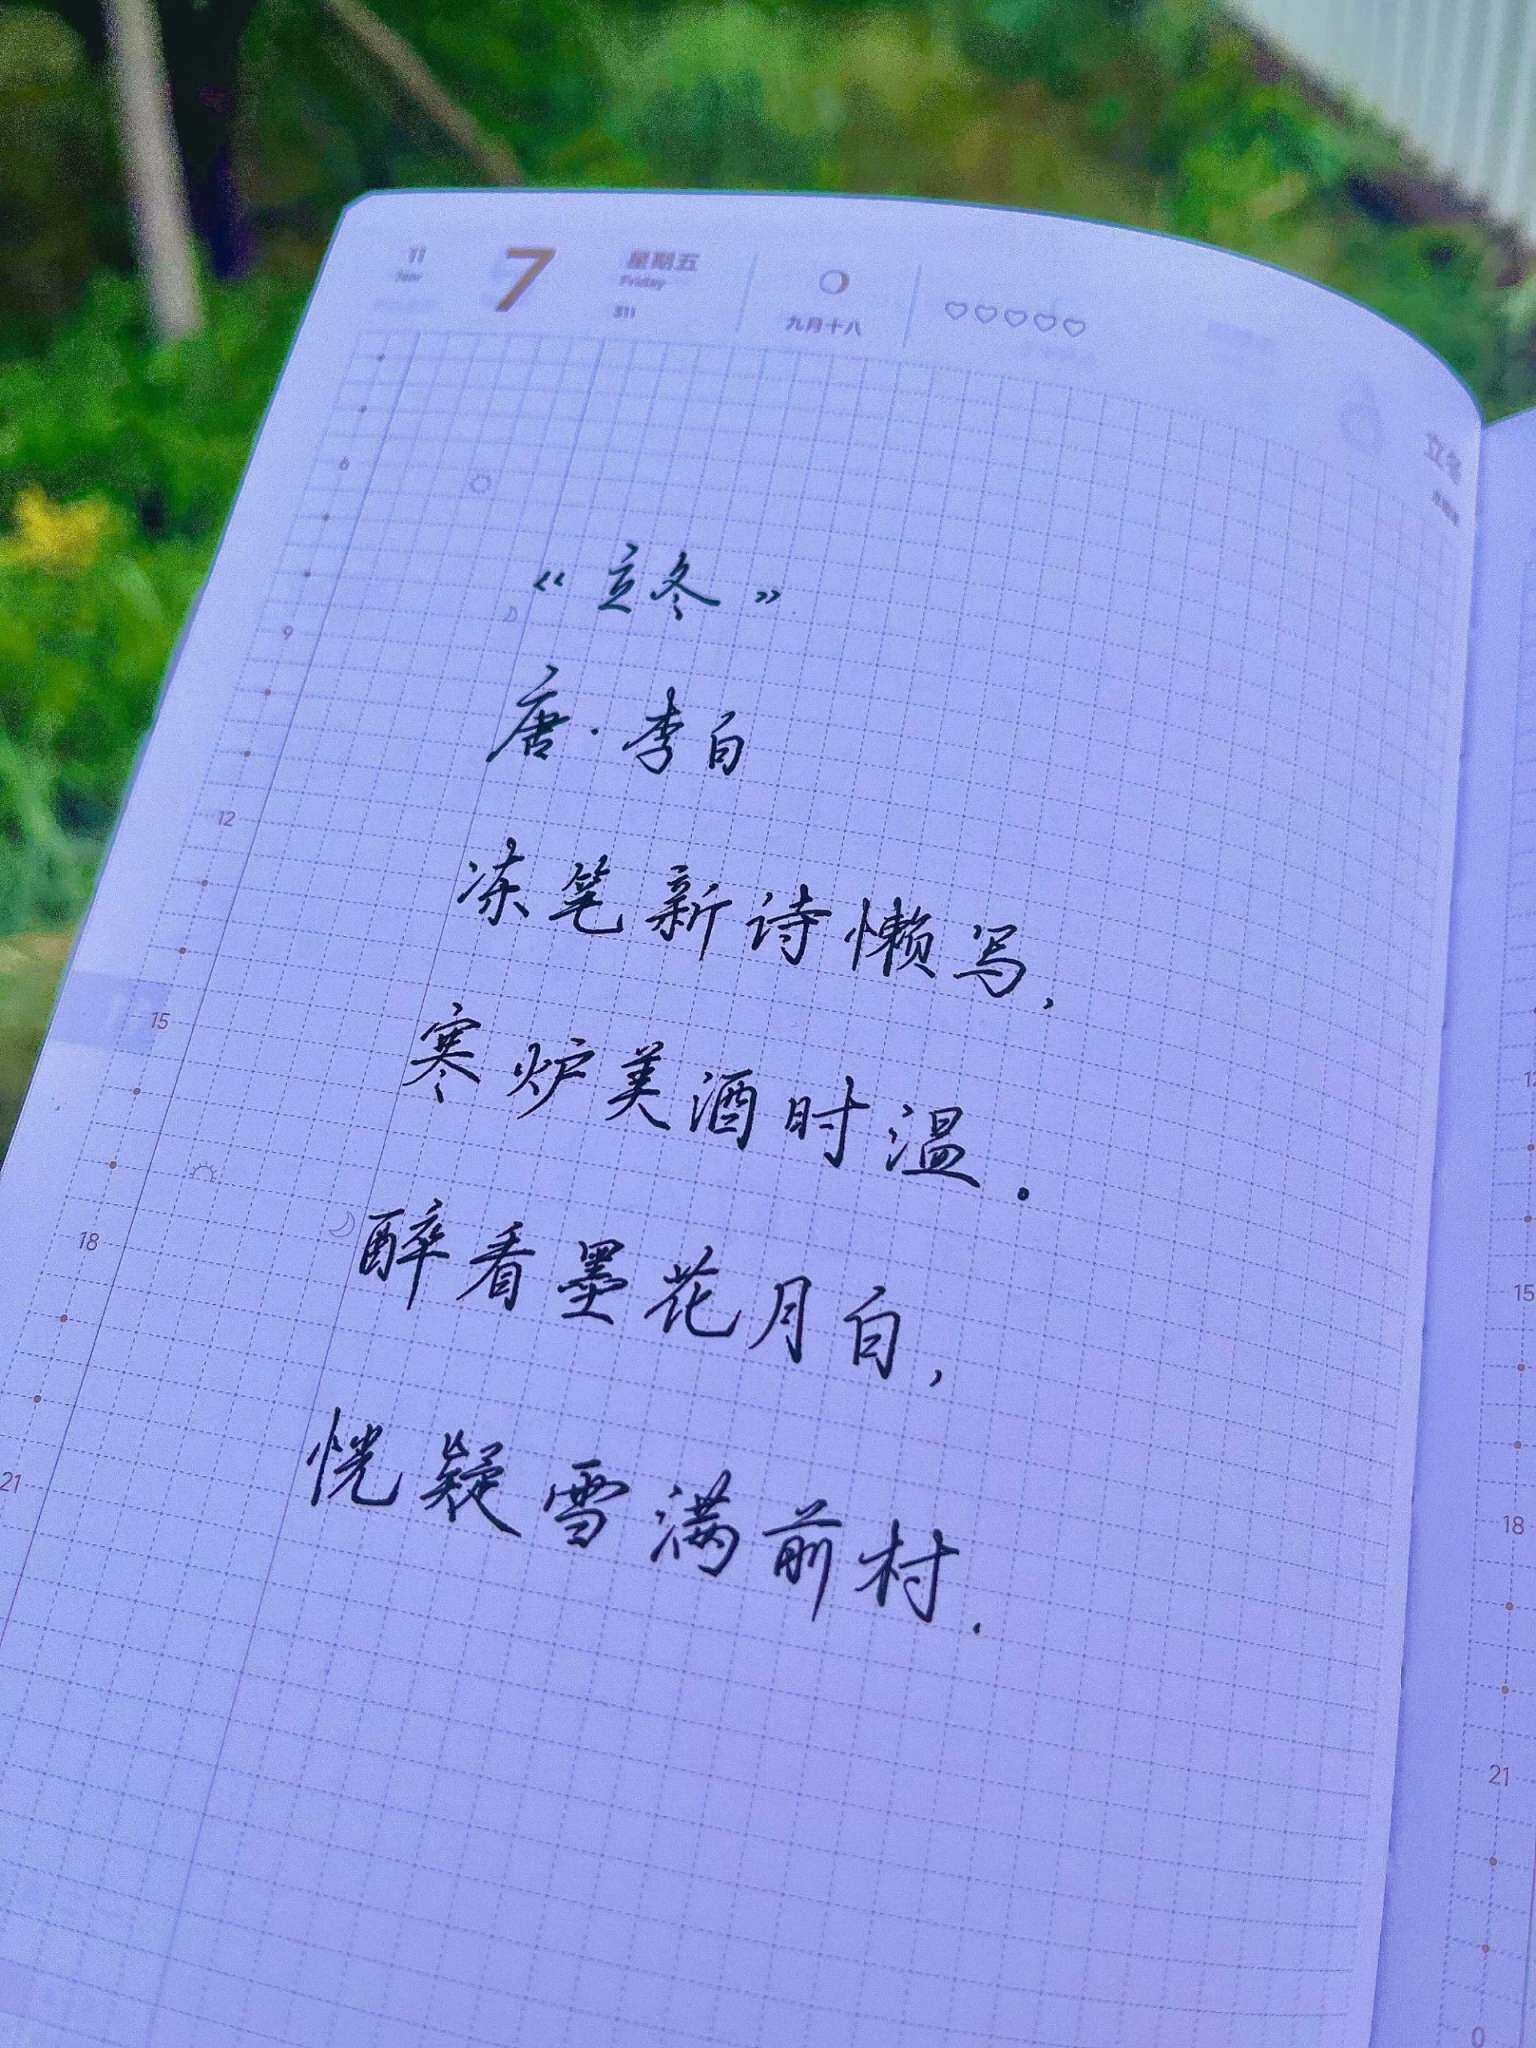 11 7 星期五
Nov Friday
311 九月十八
立冬
《立冬》
唐·李白
冻笔新诗懒写，
寒炉美酒时温。
醉看墨花月白，
恍疑雪满前村.
6
9
12
15
18
21
15
18
21
0